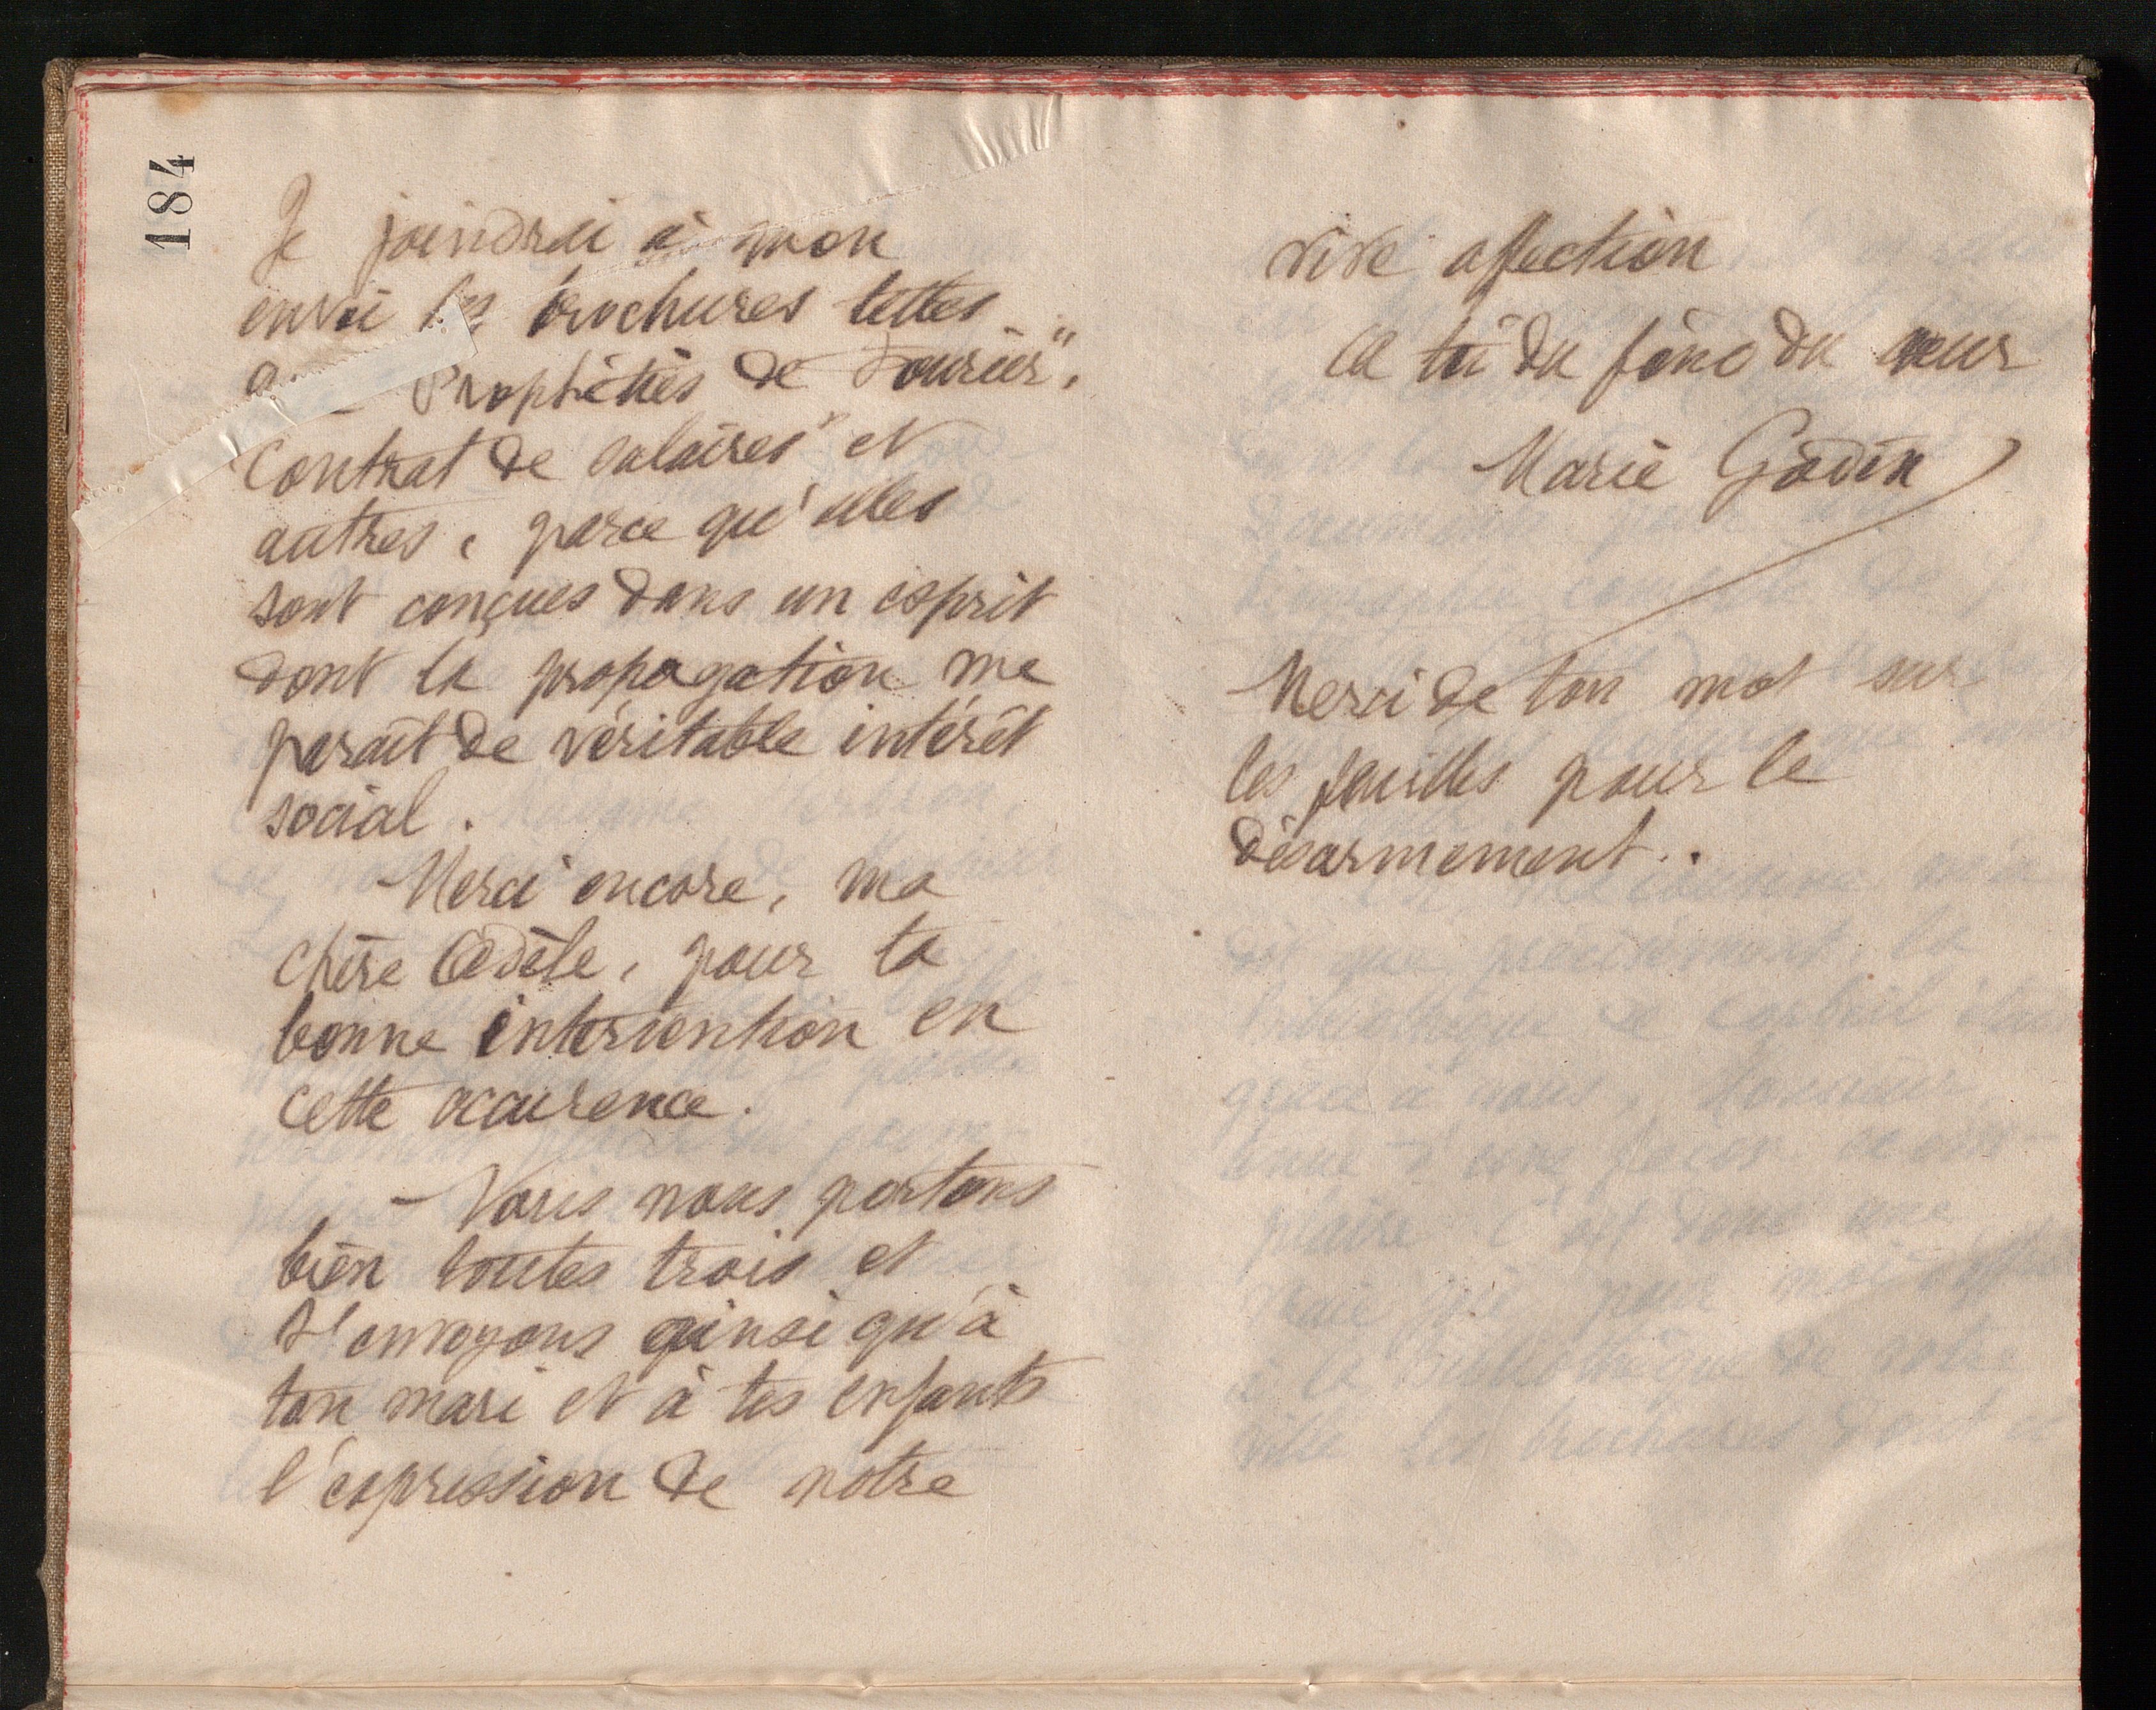 184
Je joindrai à mon
envoi les brochures telles
Prophéties de Fourier",
Contrat de salaires" et
autres, parce qu'elles
sont conçues dans un esprit
dont la propagation me
paraît de véritable intérêt
social.
Merci encore, ma
chère Adèle, pour ta
bonne intervention en
cette occurence.
- Nous nous portons
bien toutes trois et
t'envoyons ainsi qu'à
ton mari et à tes enfants
l'expression de notre
vive affection
A toi du fond du cœur
Marie Godin
Merci de ton mot sur
les feuilles pour le
désarmement.